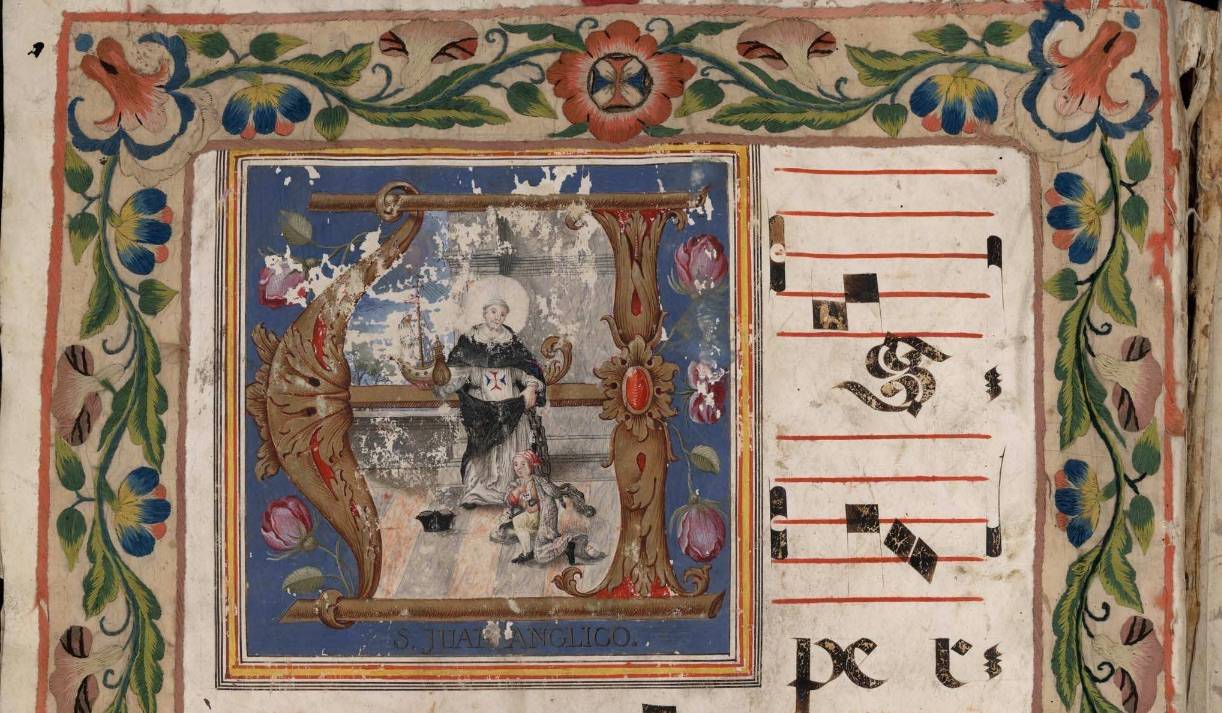 A
S-
S. JUAN ANGLICO.
pe r-